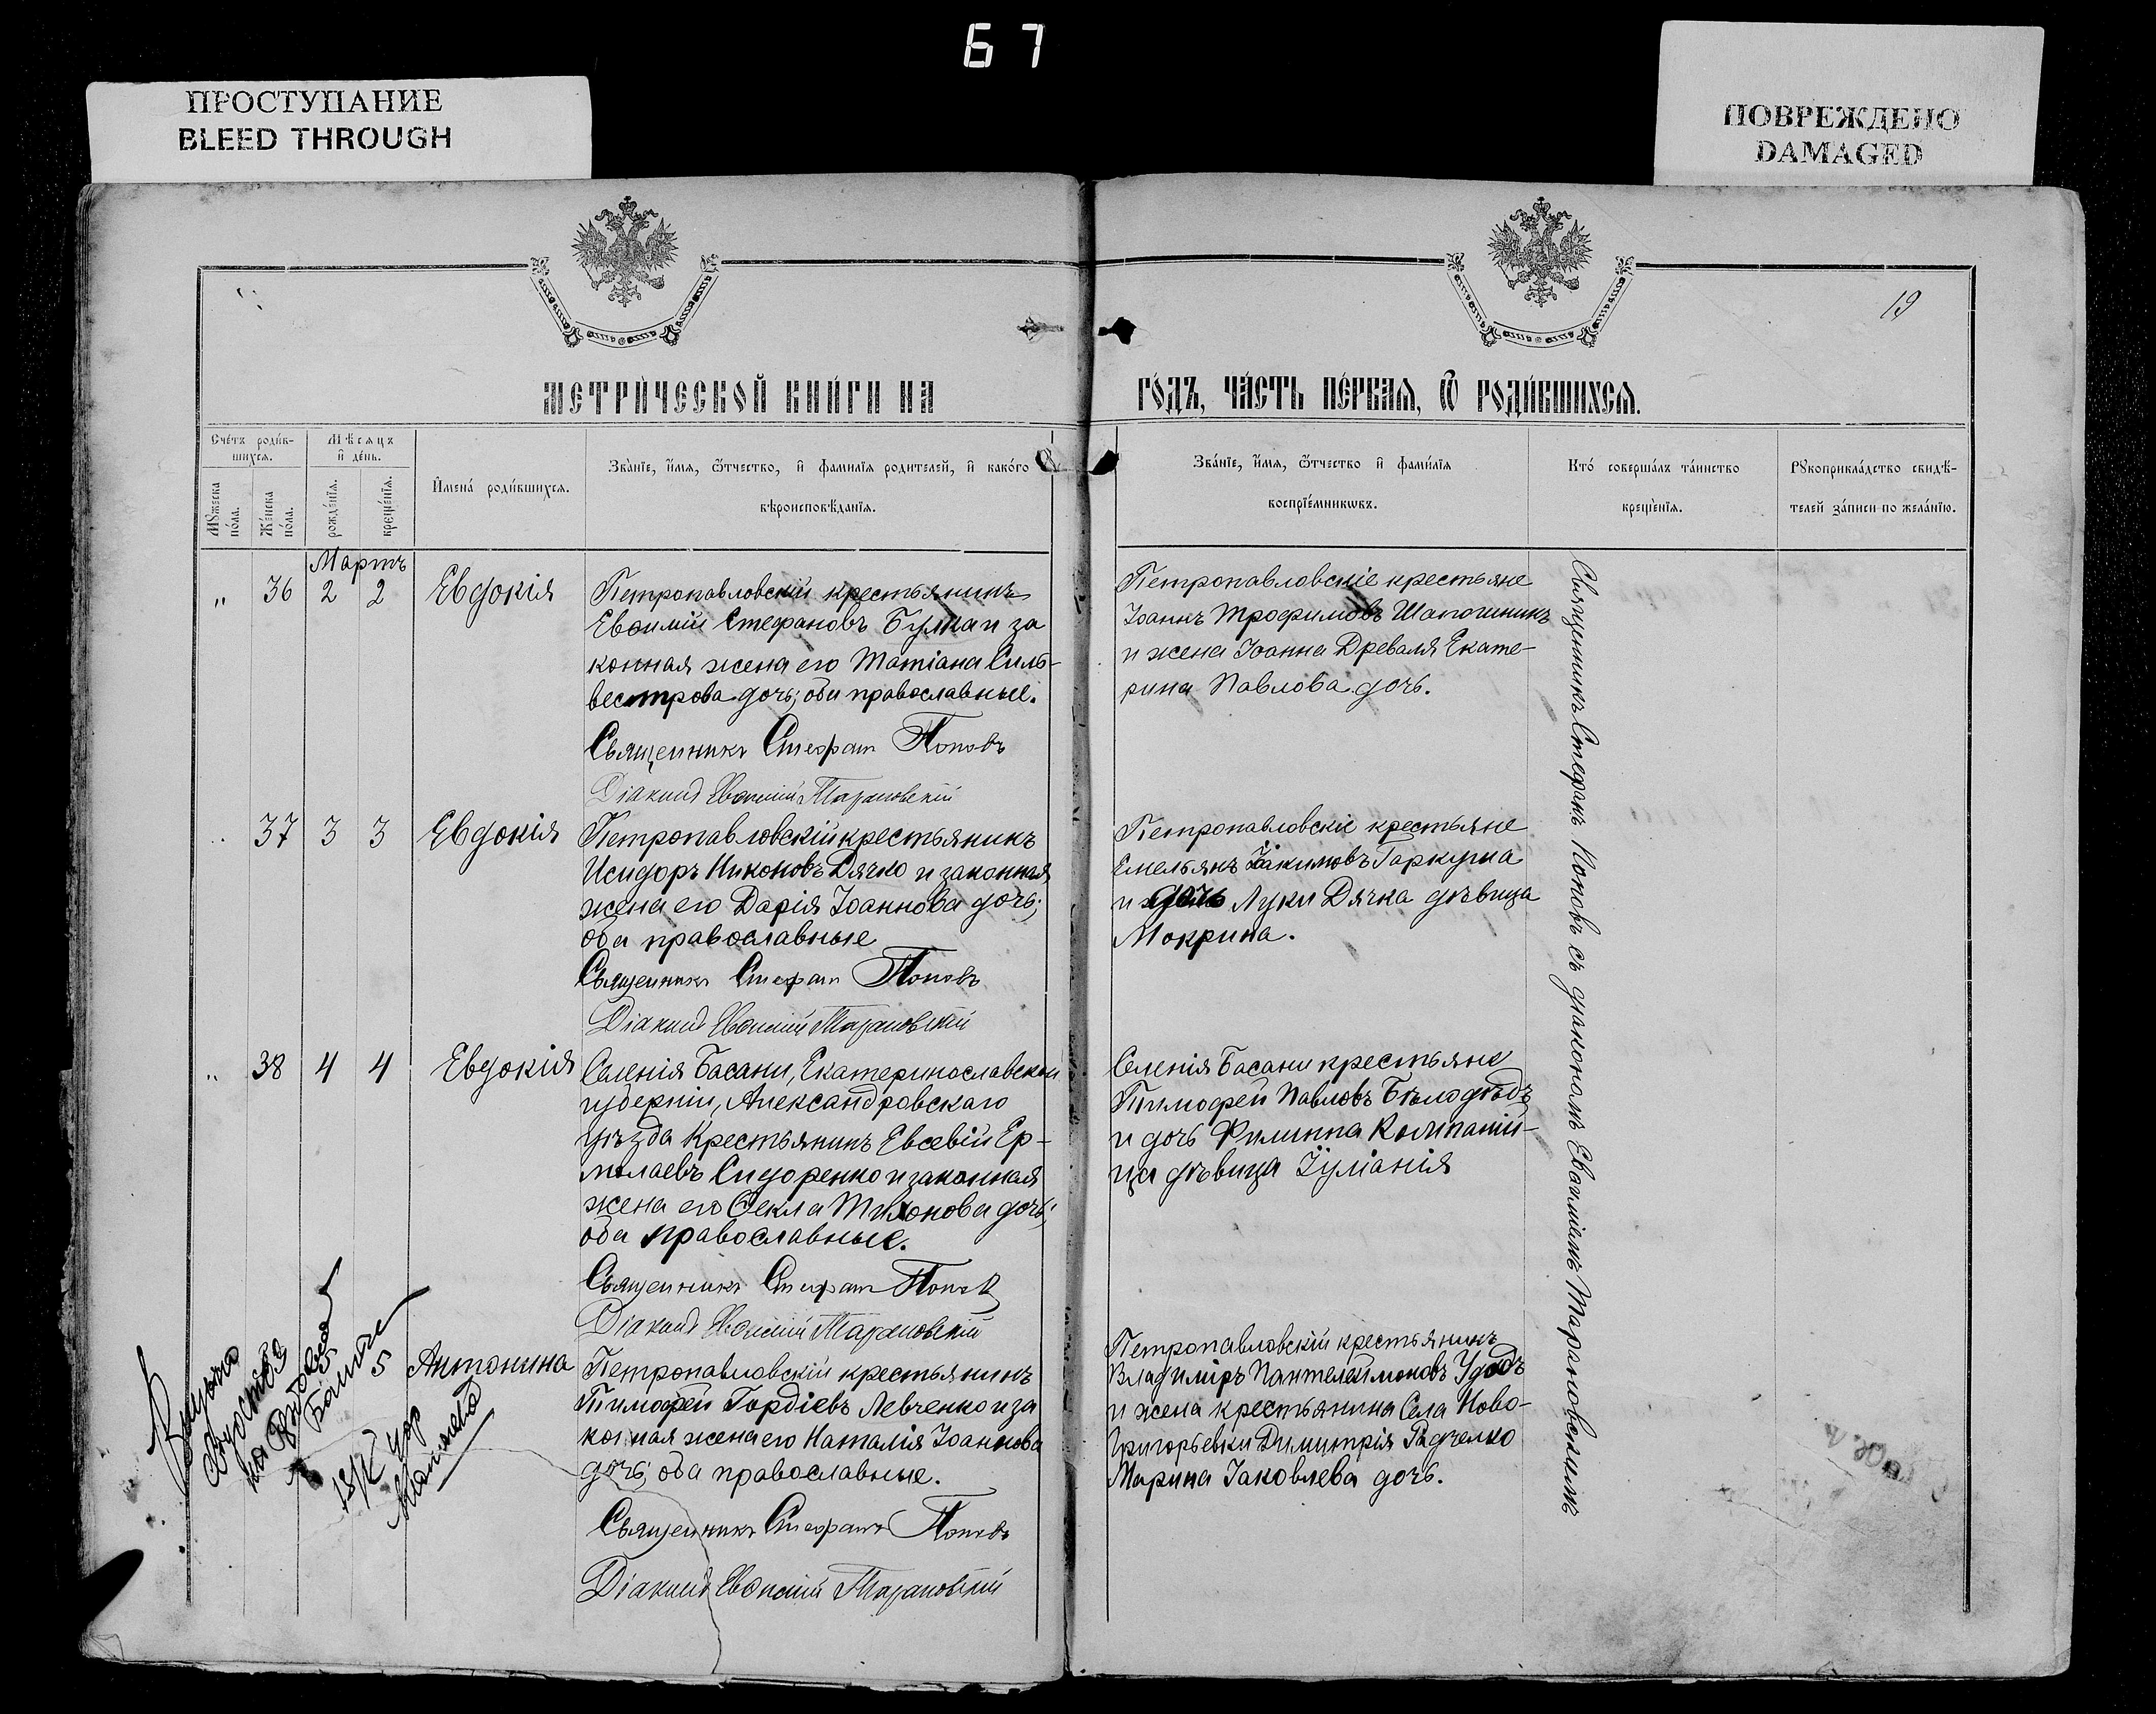 67
ПРОСТУПАНИЕ
BLEED THROUGH
ПОВРЕЖДЕНО
DAMAGED
19
МЕТРИ́ЧЕСКОЙ КНИ́ГИ НА
ГО́ДЪ, ЧА́СТЬ ПЕ́РВАЯ, Ѿ РОДИ́ВШИХСЯ.
Сче́тъ роди́в-
шихся.
Му́жеска
по́ла.
Же́нска
по́ла.
Мѣсяцъ
и҆ де́нь.
рожде́нїя.
креще́нїя.
И҆мена́ роди́вшихся.
Зва́нїе, и҆́мя, ѻ҆́тчество, и҆ фами́лїя родителей, и҆ како́го
вѣроисповѣ́данїя.
Зва́нїе, и҆́мя, ѻ҆́тчество и҆ фами́лїя
воспрїе́мникѡвъ.
Кто́ соверша́лъ та́инство
креще́нїя.
Рꙋкоприкла́дство свидѣ́-
телей за́писи по жела́нїю.
Мартъ
" 36 2 2 Евдокія
Петропавловскій крестьянинъ
Евѳимій Стефановъ Булка и за
конная жена его Татіана Силь-
вестрова дочь; оба православные.
Священникъ Стефанъ Поповъ
Діаконъ Евѳимій Тарановскій
Петропавловскіе крестьяне
Іоаннъ Трофимовъ Шапошникъ
и жена Іоанна Древаля Екате-
рина Павлова дочь.
" 37 3 3 Евдокія
Петропавловскій крестьянинъ
Исидоръ Никоновъ Дячко и законная
жена его Дарія Іоаннова дочь;
оба православные
Священникъ Стефанъ Поповъ
Діаконъ Евѳимій Тарановскій
Петропавловскіе крестьяне
Емельянъ Іакимовъ Гаркуша
и дочь Луки Дячка дѣвица
Мокрина.
" 38 4 4 Евдокія
Селенія Басани, Екатеринославской
губерніи, Александровскаго
уѣзда крестьянинъ Евсевій Ер-
молаевъ Сидоренко и законная
жена его Ѳекла Тихонова дочь;
оба православные.
Священникъ Стефанъ Поповъ
Діаконъ Евѳимій Тарановскій
Селенія Басани крестьяне
Тимофей Павловъ Бѣлодѣдъ
и дочь Филиппа Компаній-
ца дѣвица Іуліанія
5 5 Антонина
Петропавловскій крестьянинъ
Тимофей Гордіевъ Левченко и за
конная жена его Наталія Іоаннова
дочь; оба православные.
Священникъ Стефанъ Поповъ
Діаконъ Евѳимій Тарановскій
Петропавловскій крестьянинъ
Владиміръ Пантелеймоновъ Удодъ
и жена крестьянина села Ново-
григорьевки Димитрія Радченко
Марина Іаковлева дочь.
Священникъ Стефанъ Поповъ съ діакономъ Евѳиміемъ Тарановскимъ